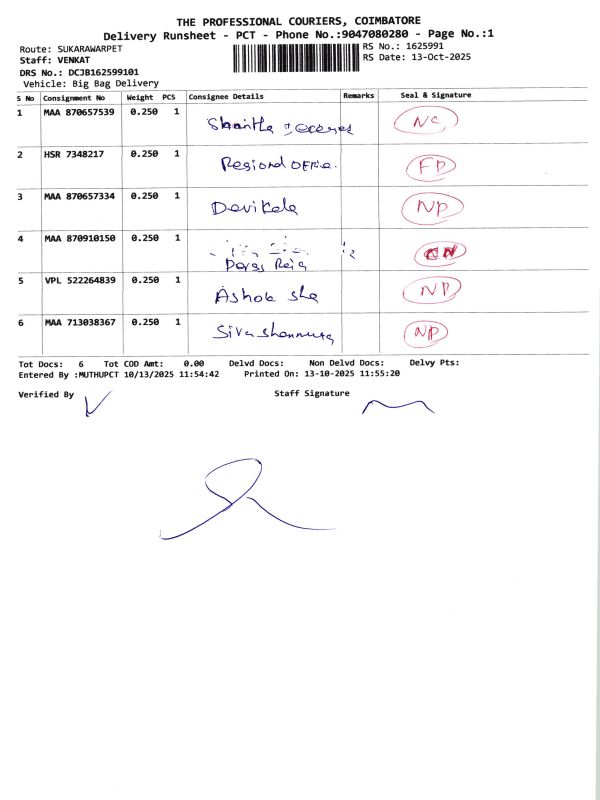 THE PROFESSIONAL COURIERS, COIMBATORE
Delivery Runsheet - PCT - Phone No.:9047080280 - Page No.:1
Route: SUKARAWARPET
RS No.: 1625991
Staff: VENKAT
RS Date: 13-Oct-2025
DRS No.: DCJB162599101
Vehicle: Big Bag Delivery
S No Consignment No Weight PCS Consignee Details Remarks Seal & Signature
1 MAA 870657539 0.250 1 Shantha NC
2 HSR 7348217 0.250 1 Regional office. FD
3 MAA 870657334 0.250 1 Devikala NP
4 MAA 870910150 0.250 1 Paras
5 VPL 522264839 0.250 1 Ashok sha NP
6 MAA 713038367 0.250 1 Siva shanmuga NP
Tot Docs: 6 Tot COD Amt: 0.00 Delvd Docs: Non Delvd Docs: Delvy Pts:
Entered By :MUTHUPCT 10/13/2025 11:54:42 Printed On: 13-10-2025 11:55:20
Verified By Staff Signature